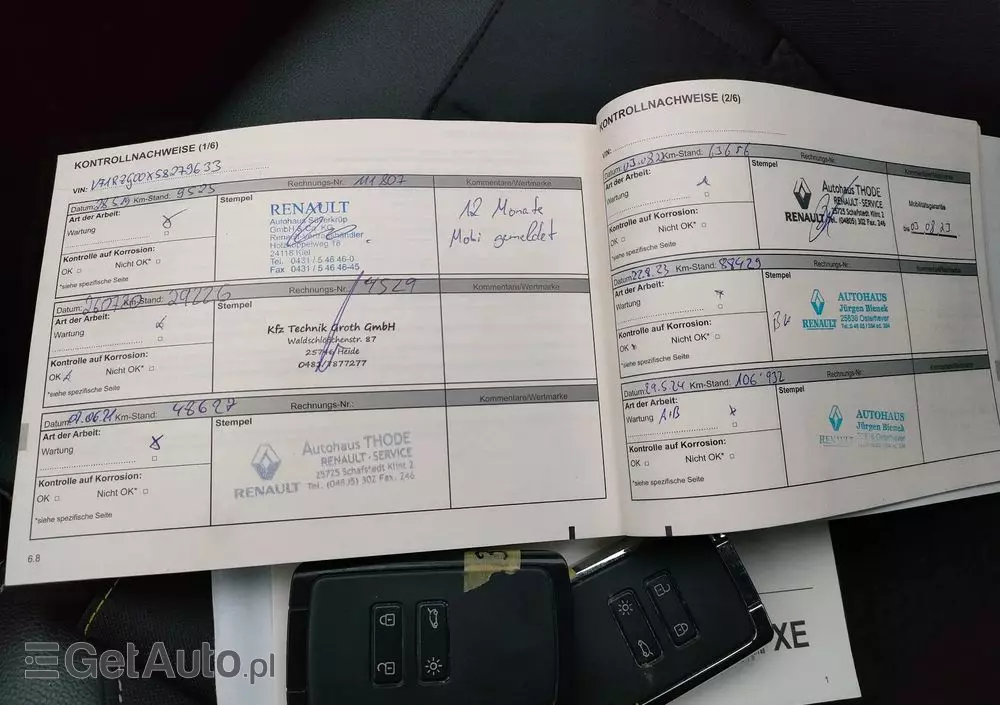 KONTROLLNACHWEISE (1/6)
VIN:
Datum: 28.5.19 Km-Stand: 9525 Rechnungs-Nr. 111807 Kommentare/Wertmarke
Art der Arbeit:
Wartung
Stempel
RENAULT
GmbH & Co. KG
24118 Kiel
Tel. 0431 / 5 46 46-0
Fax 0431 / 5 46 46-45
12 Monate
Mobi gemeldet
Kontrolle auf Korrosion:
OK Nicht OK*
*siehe spezifische Seite
Datum: Km-Stand: Rechnungs-Nr. 14529 Kommentare/Wertmarke
Art der Arbeit:
Wartung
Stempel
Kfz Technik Groth GmbH
Waldschlößchenstr. 87
Heide
Kontrolle auf Korrosion:
OK Nicht OK*
*siehe spezifische Seite
Datum: 07.06.21 Km-Stand: 48627 Rechnungs-Nr.: Kommentare/Wertmarke
Art der Arbeit:
Wartung
Stempel
Autohaus THODE
RENAULT - SERVICE
25725 Schafstedt Klint 2
RENAULT Tel. (04805) 302 Fax. 246
Kontrolle auf Korrosion:
OK Nicht OK*
*siehe spezifische Seite
6.8
KONTROLLNACHWEISE (2/6)
VIN:
Datum: 03.08.22 Km-Stand: 63656 Rechnungs-Nr. Kommentare/Wertmarke
Art der Arbeit:
Wartung
Stempel
Autohaus THODE
RENAULT - SERVICE
25725 Schafstedt Klint 2
RENAULT Tel. (04805) 302 Fax. 246
Mobilitätsgarantie
bis 03 08 23
Kontrolle auf Korrosion:
OK Nicht OK*
*siehe spezifische Seite
Datum: 22.8.23 Km-Stand: 88429 Rechnungs-Nr. Kommentare/Wertmarke
Art der Arbeit:
Wartung
Stempel
AUTOHAUS
Jürgen Bienek
25836 Osterhever
RENAULT
Kontrolle auf Korrosion:
OK Nicht OK*
*siehe spezifische Seite
Datum: 29.5.24 Km-Stand: 106'932 Rechnungs-Nr. Kommentare/Wertmarke
Art der Arbeit:
Wartung A+B
Stempel
AUTOHAUS
Jürgen Bienek
Osterhever
RENAULT
Kontrolle auf Korrosion:
OK Nicht OK*
*siehe spezifische Seite
3
XE
1
GetAuto.pl